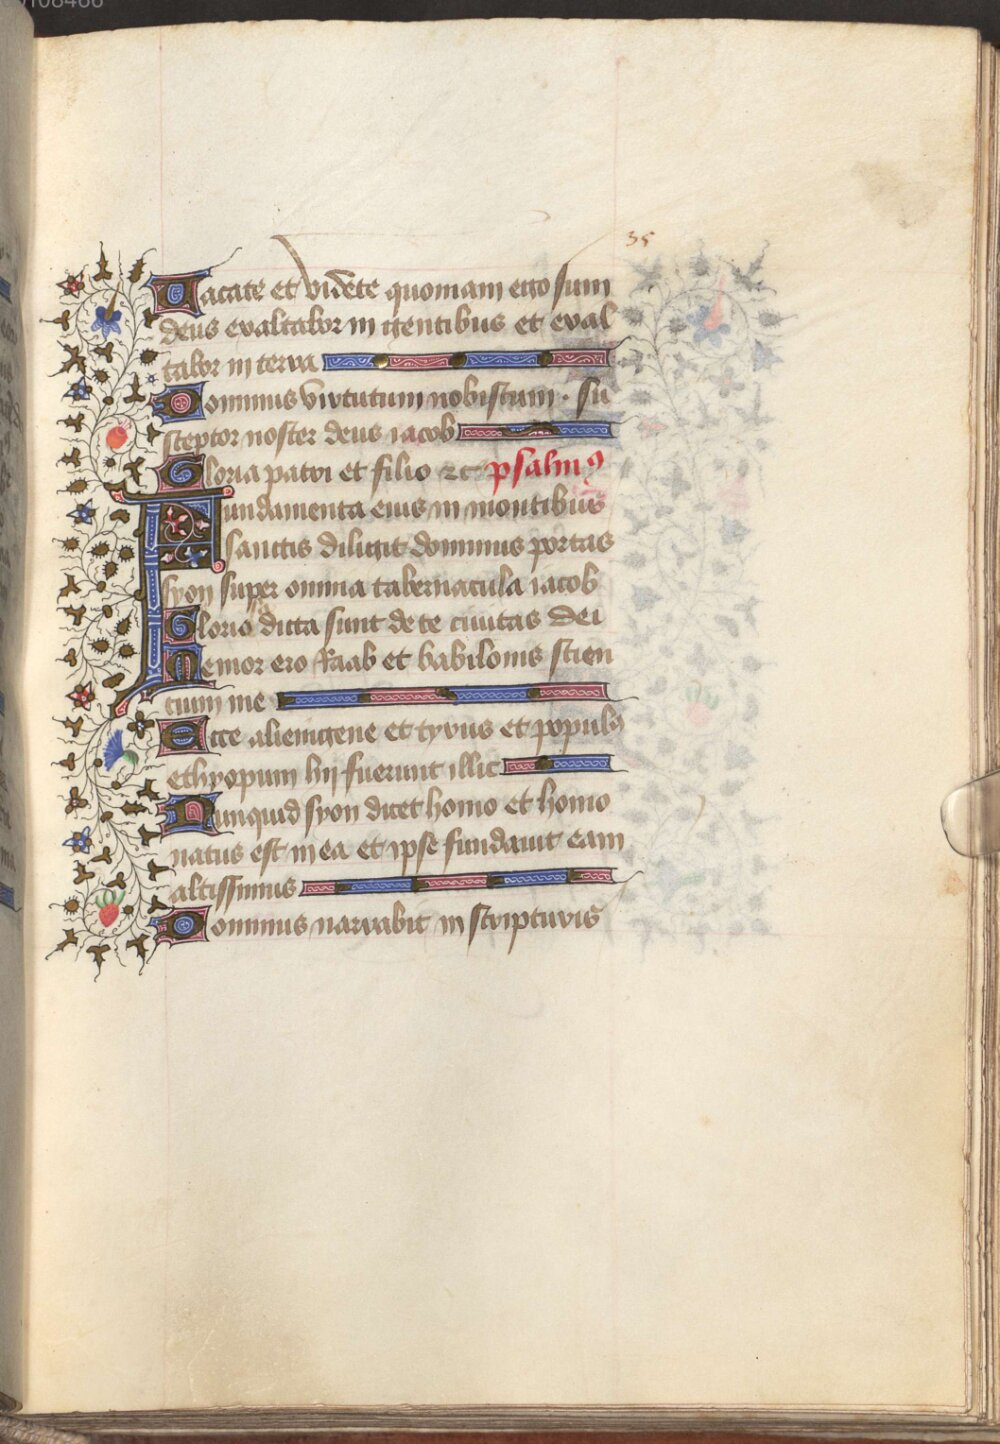 35
Vacate et videte quoniam ego sum
deus exaltabor in gentibus et exal
tabor in terra
Dominus virtutum nobiscum · su
sceptor noster deus iacob
Gloria patri et filio etc psalmꝰ
Fundamenta eius in montibus
sanctis diligit dominus portas
syon super omnia tabernacula iacob
Gloriosa dicta sunt de te civitas dei
Memor ero Raab et babilonis scien
cium me
Ecce alienigene et tyrus et populꝰ
ethyopum hij fuerunt illic
Nunquid syon dicet homo et homo
natus est in ea et ipse fundavit eam
altissimus
Dominus narrabit in scripturis